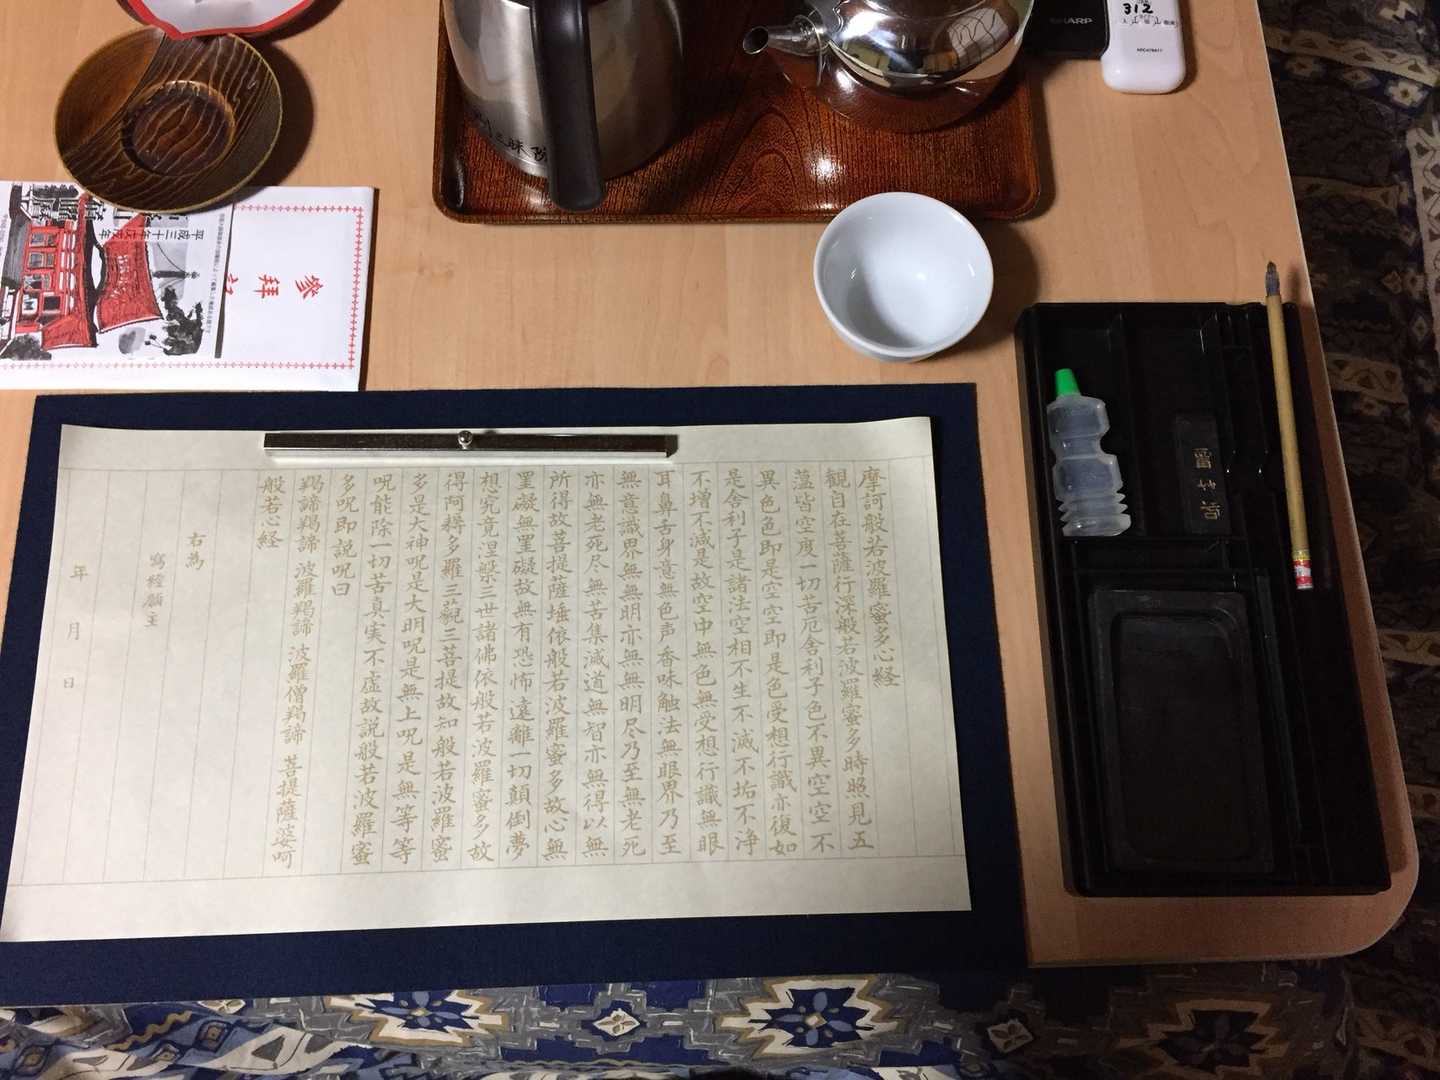 摩訶般若波羅蜜多心経
観自在菩薩行深般若波羅蜜多時照見五
蘊皆空度一切苦厄舎利子色不異空空不
異色色即是空空即是色受想行識亦復如
是舎利子是諸法空相不生不滅不垢不浄
不増不減是故空中無色無受想行識無眼
耳鼻舌身意無色声香味触法無眼界乃至
無意識界無無明亦無無明尽乃至無老死
亦無老死尽無苦集滅道無智亦無得以無
所得故菩提薩埵依般若波羅蜜多故心無
罣礙無罣礙故無有恐怖遠離一切顛倒夢
想究竟涅槃三世諸佛依般若波羅蜜多故
得阿耨多羅三藐三菩提故知般若波羅蜜
多是大神呪是大明呪是無上呪是無等等
呪能除一切苦真実不虚故説般若波羅蜜
多呪即説呪曰
羯諦羯諦 波羅羯諦 波羅僧羯諦 菩提薩婆呵
般若心経
右為
写経願主
年 月 日
参拝
平成三十年戊戌年
三昧院
SHARP
312